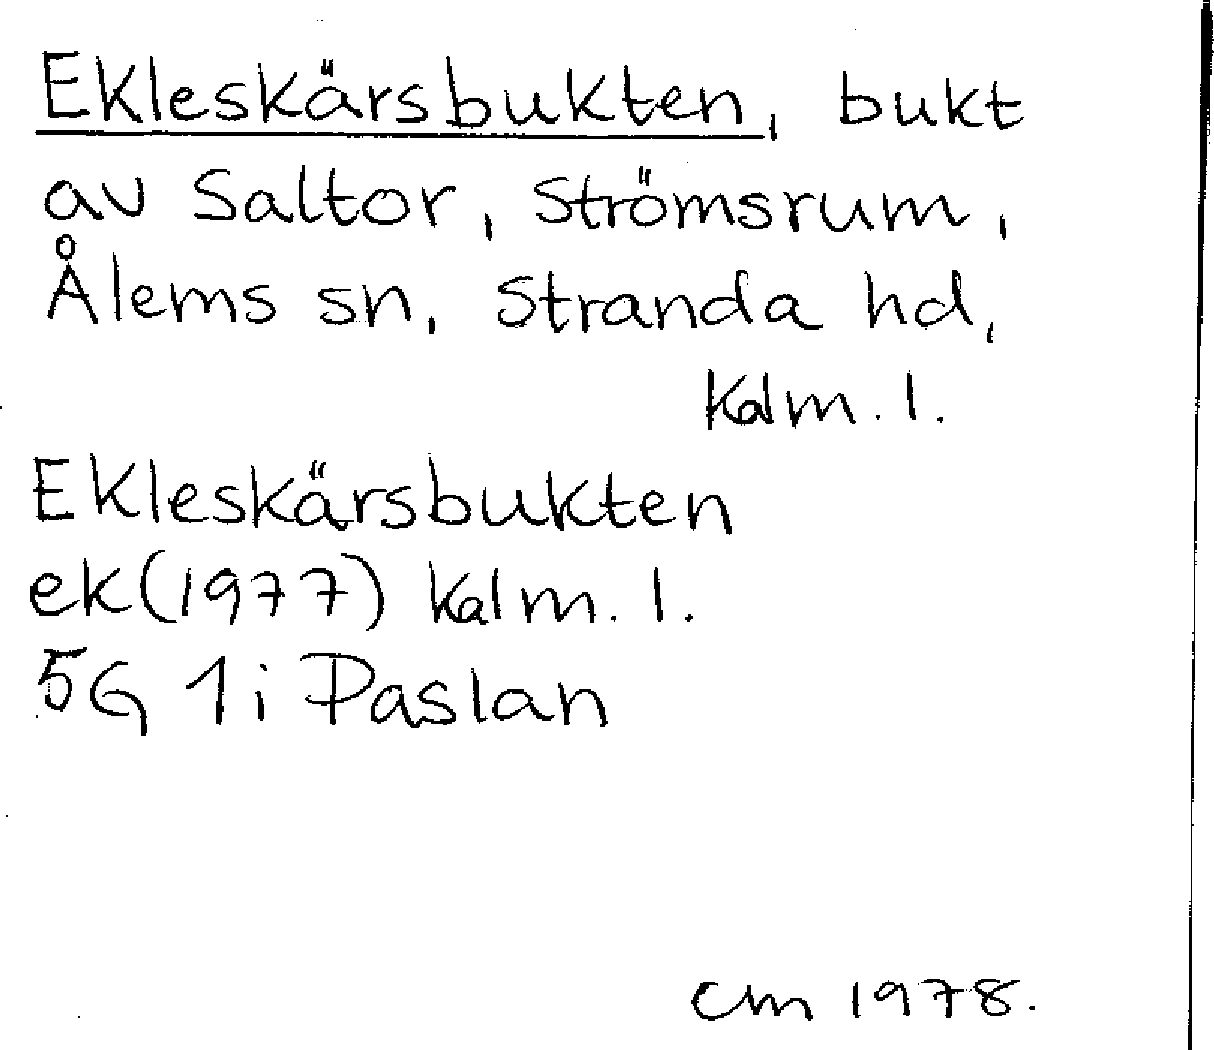 Ekleskärsbukten, bukt
av Saltor, Strömsrum,
Ålems sn, Stranda hd,
Kalm. l.
Ekleskärsbukten
ek(1977) Kalm. l.
5G 1i Paslan
CM 1978.